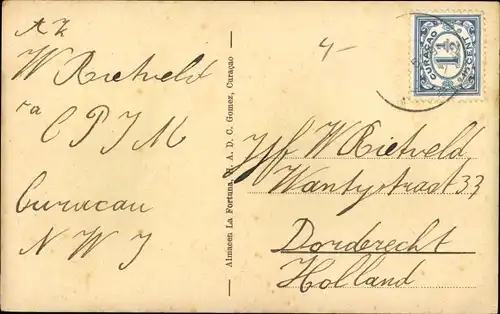 AZ
W Rietveld
p/a
C P I M
Curacau
N W I
Almacen La Fortuna, H. A. D. C. Gomez, Curaçao
4-
CURAÇAO
1½
CENT
Jf W Rietveld
Wantystraat 33
Dordrecht
Holland